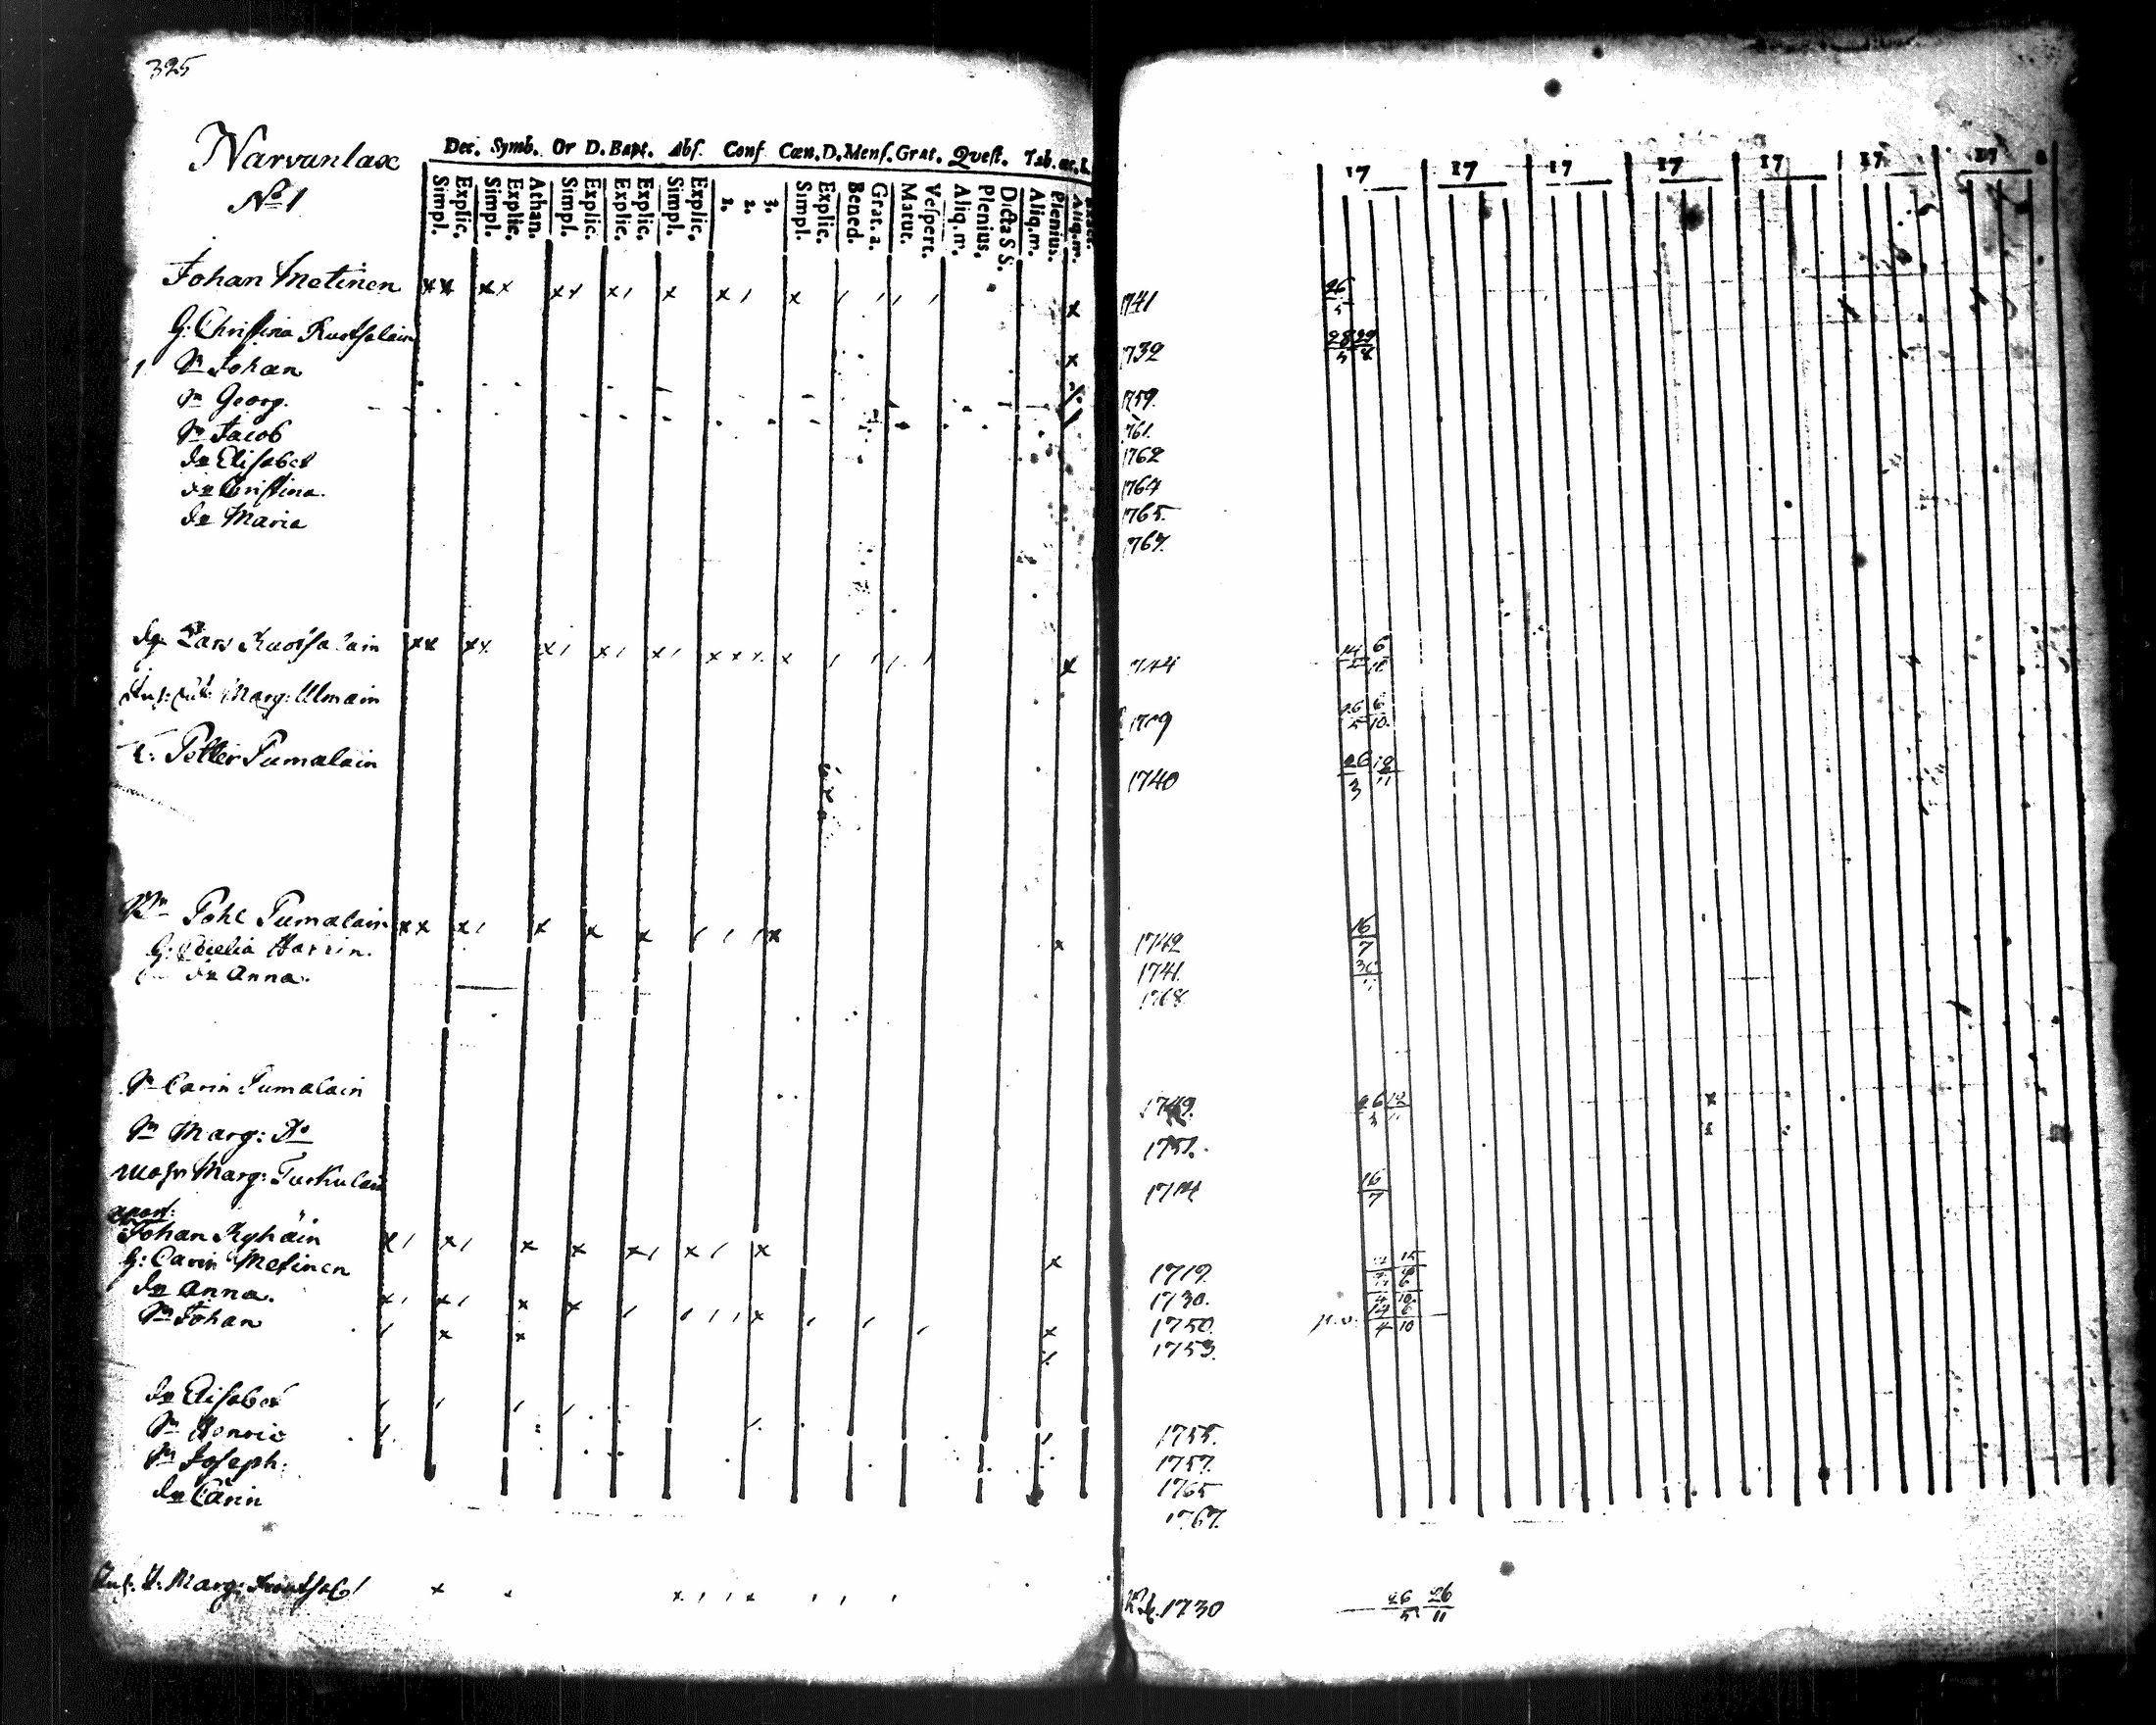 325
Narvanlax
No 1
Dec. Symb. Or D. Bapt. Abſ. Conf Cœn. D. Menſ. Grat. Quæſt. Tab. œc.
Simpl. Explic. Simpl. Explic. Athan. Simpl. Explic. Explic. Explic. Simpl. Explic. 1. 2. 3. Simpl. Explic. Bened. Grat. a. Matut. Veſpert. Aliq. m. Plenius. Dicta S S. Aliq. m. Plenius. Aliq. m.
17 17 17 17 17 17 17
Johan Metinen 1741 26/5
h: Christina Ruotsalain 1732 28/5 29/8
1 Sn Johan 1759.
Sn Georg. 1761.
Sn Jacob 1762
dr Elisabet 1764
dr Christina. 1765.
dr Maria 1767.
Lars Ruotsalain 1744 14 6
Marg: Ulmain 1709 26/5 6/10.
Petter Pumalain 1740 26/3 12/11
Pohl Pumalain 1742 16/7
h: Cecilia Harrin. 1741.
dr Anna. 1768
Carin Pumalain 1749. 26/3 12
Sn Marg: Do 1751.
Marg: Turkulain 1714 16/7
Johan Kyhäin 1719.
h: Carin Metinen 1730.
dr Anna. 1750. 14/4 6/10
Sn Johan 1753.
dr Elisabet 1755.
Sn Henric 1757.
Sn Joseph. 1765
dr Carin 1767.
Marg: 1730 26/5 26/11